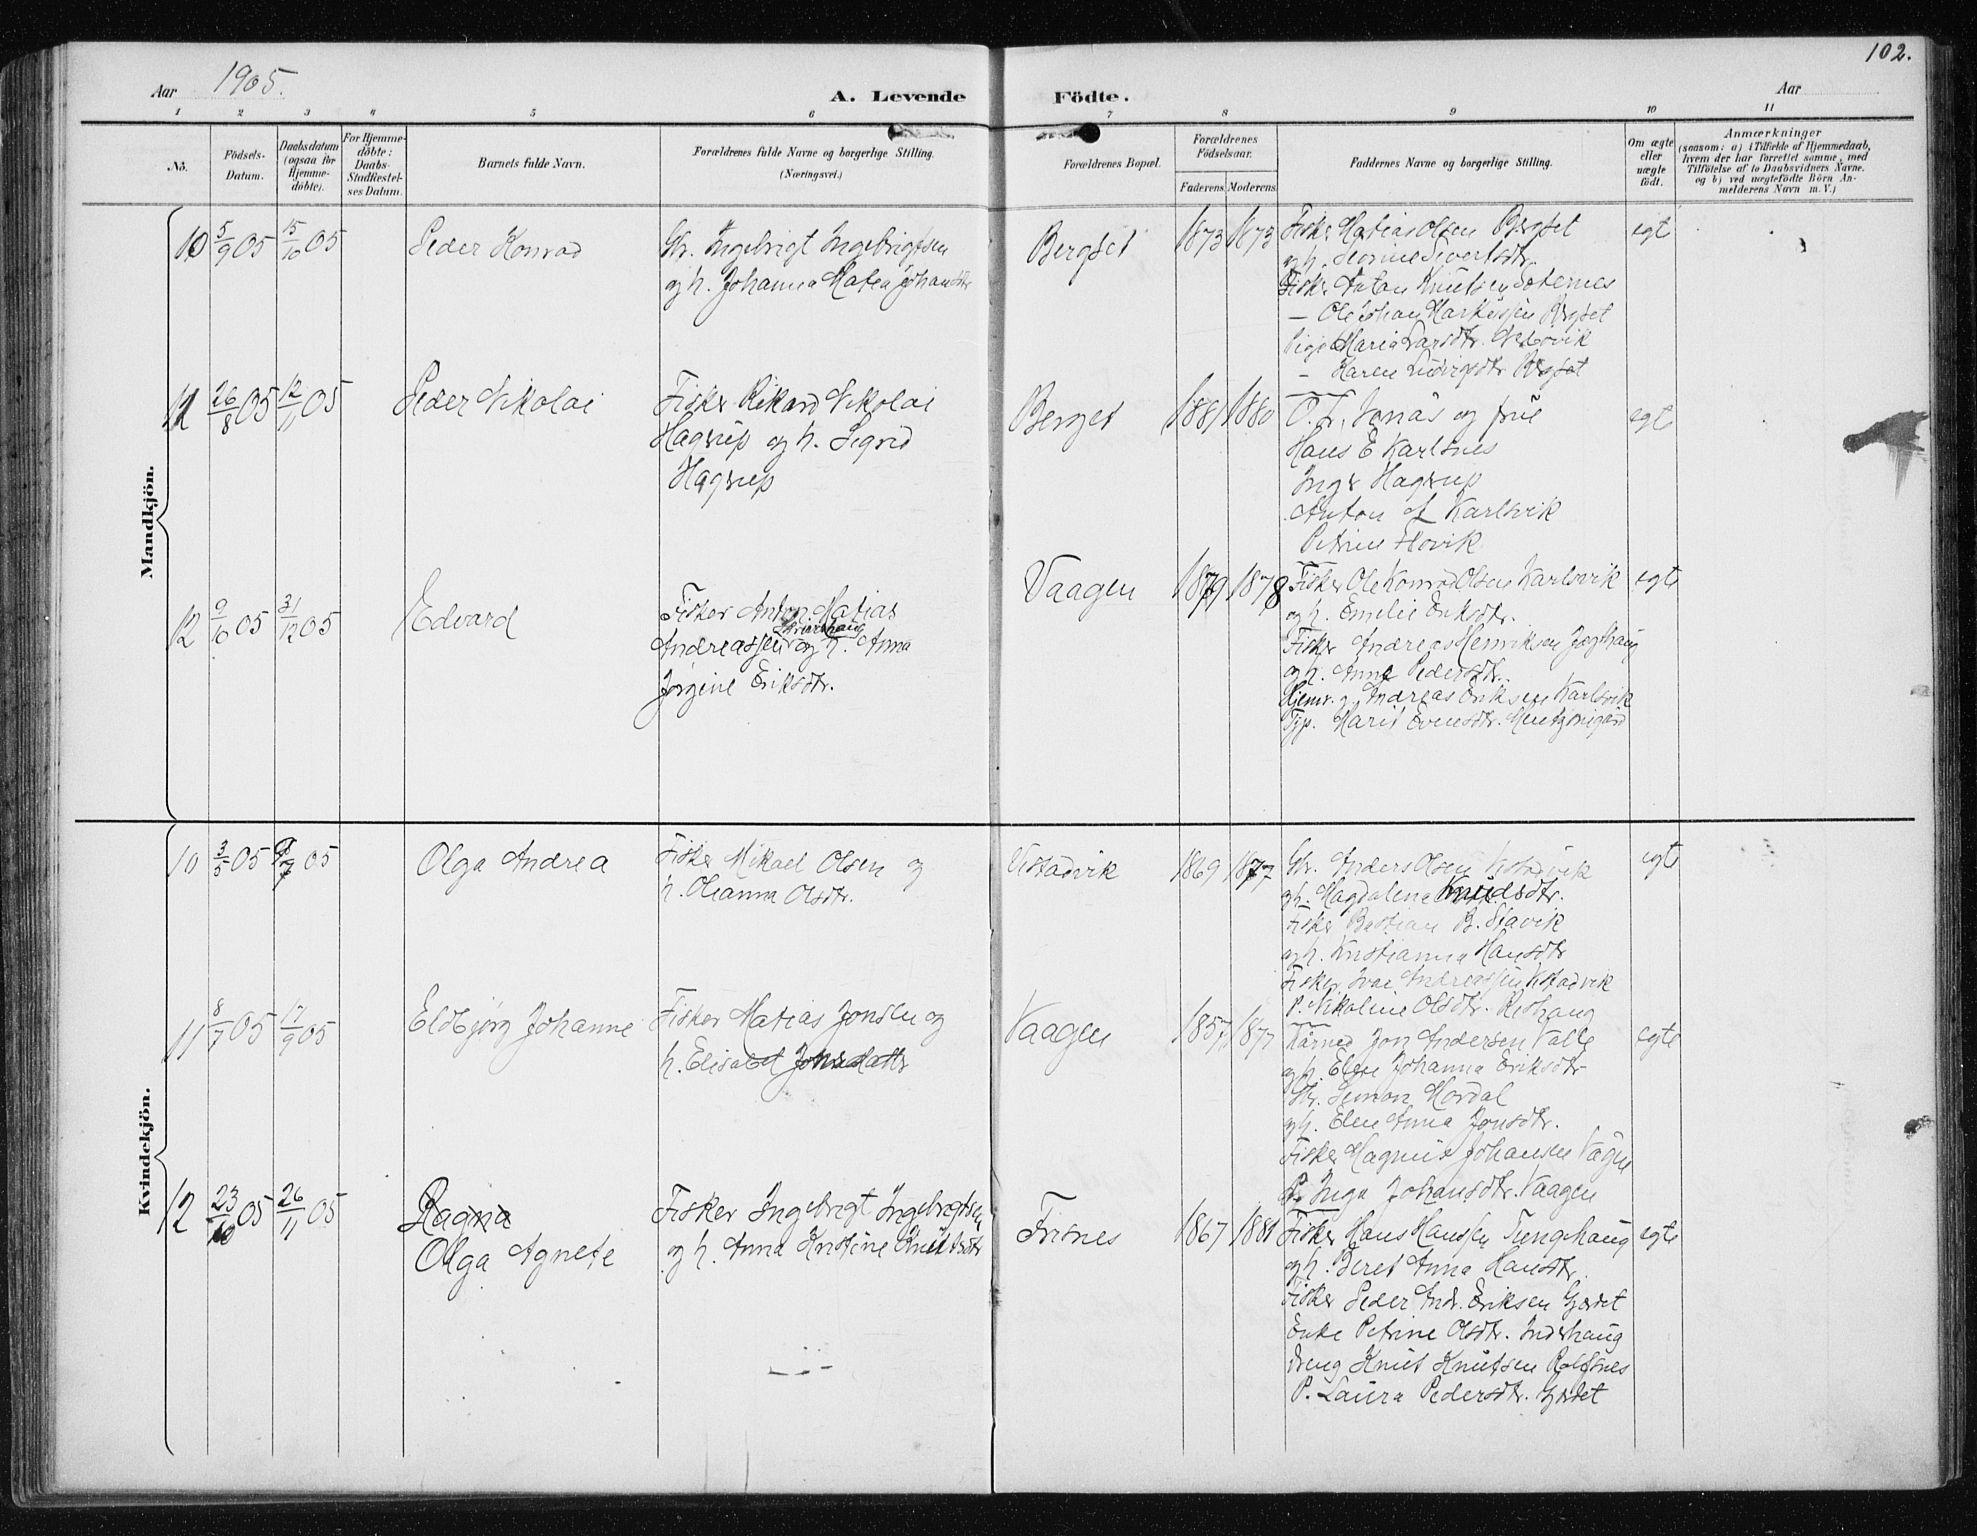 102.
Aar 1905.
A. Levende Födte.
Aar
1 2 3 4 5 6 7 8 9 10 11
No.
Födsels-Datum.
Daabsdatum (ogsaa for Hjemme-döbte).
For Hjemme-döbte: Daabs-Stadfæstel-ses Datum.
Barnets fulde Navn.
Forældrenes fulde Navne og borgerlige Stilling. (Næringsvei.)
Forældrenes Bopæl.
Forældrenes Födselsaar.
Faderens. Moderens.
Faddernes Navne og borgerlige Stilling.
Om ægte eller uægte födt.
Anmærkninger
(saasom: a) i Tilfælde af Hjemmedaab, hvem der har forrettet samme, med Tilföielse af to Daabsvidners Navne, og b) ved uægtefödte Börn An-melderens Navn m. V.)
Mandkjön.
10 5/9 05 15/10 05 Peder Konrad
Str. Ingebrigt Ingebrigtsen
og h. Johanna Matea Johansdtr
Bergset 1873 1873
Fisker Matias Olsen Bergset
og h. Sivertsdtr.
Fisker Anton Knutsen
— Ole Johan Markussen Bergset
Pige Maria Larsdtr.
— Karen Ludvigsdtr. Bergset
egte
11 26/8 05 12/11 05 Peder Nikolai
Fisker Rikard Nikolai
Hagrup og h. Sigrid
Hagrup
Berget 1881 1880
O. L. Jonas og frue
Hans E Karlsnes
Inger Hagrup
Anton Karlsvik
Petrine Hovik
egte
12 9/10 05 31/12 05 Edvard
Fisker Anton Matias
Andreassen og h. Anna
Jørgine Eriksdtr.
Vaagen 1879 1878
Fisker Ole Konrad Olsen Karlsvik
og h. Emelie Eriksdtr.
Fisker Andreas Henriksen
og h. Anne Pedersdtr.
Andreas Eriksen Karlsvik
Tjp. Marit Evensdtr.
egte
Kvindekjön.
10 3/5 05 05 Olga Andrea
Fisker Mikael Olsen og
h. Oleanna Olsdtr.
Ustadvik 1869 1877
Str. Anders Olsen Ustadvik
og h. Magdalena Knudsdtr.
Fisker Bastian B. Stavik
og h. Kristianna Hansdtr
Fisker Ivar Andreassen Ustadvik
P. Nikoline Olsdtr. Reshaug
egte
11 8/7 05 17/9 05 Eldbjørg Johanne
Fisker Matias Jonsen og
h. Elisabet Jonsdatter
Vaagen 1857 1877
Kaarmd Jon Andersen Valle
og h. Elen Johanna Eriksdtr
Str. Simon Mordal
og h. Elen Anna Jonsdtr.
Fisker Magnus Johansen Vagen
P. Inga Johansdtr. Vaagen
egte
12 23/10 05 26/11 05 Ragna
Olga Agnete
Fisker Ingebrigt Ingebrigtsen
og h. Anna Kristine Knutsdtr
Frisnes 1867 1881
Fisker Hans Hanssen Tungehaug
og h. Beret Anna Hansdtr.
Fisker Peder Andr. Eriksen Gjerdet
Enke Petrine Olsdtr. Inderhaug
dreng Knut Knutsen Rolfsnes
P. Laura Pedersdtr. Gjerdet
egte